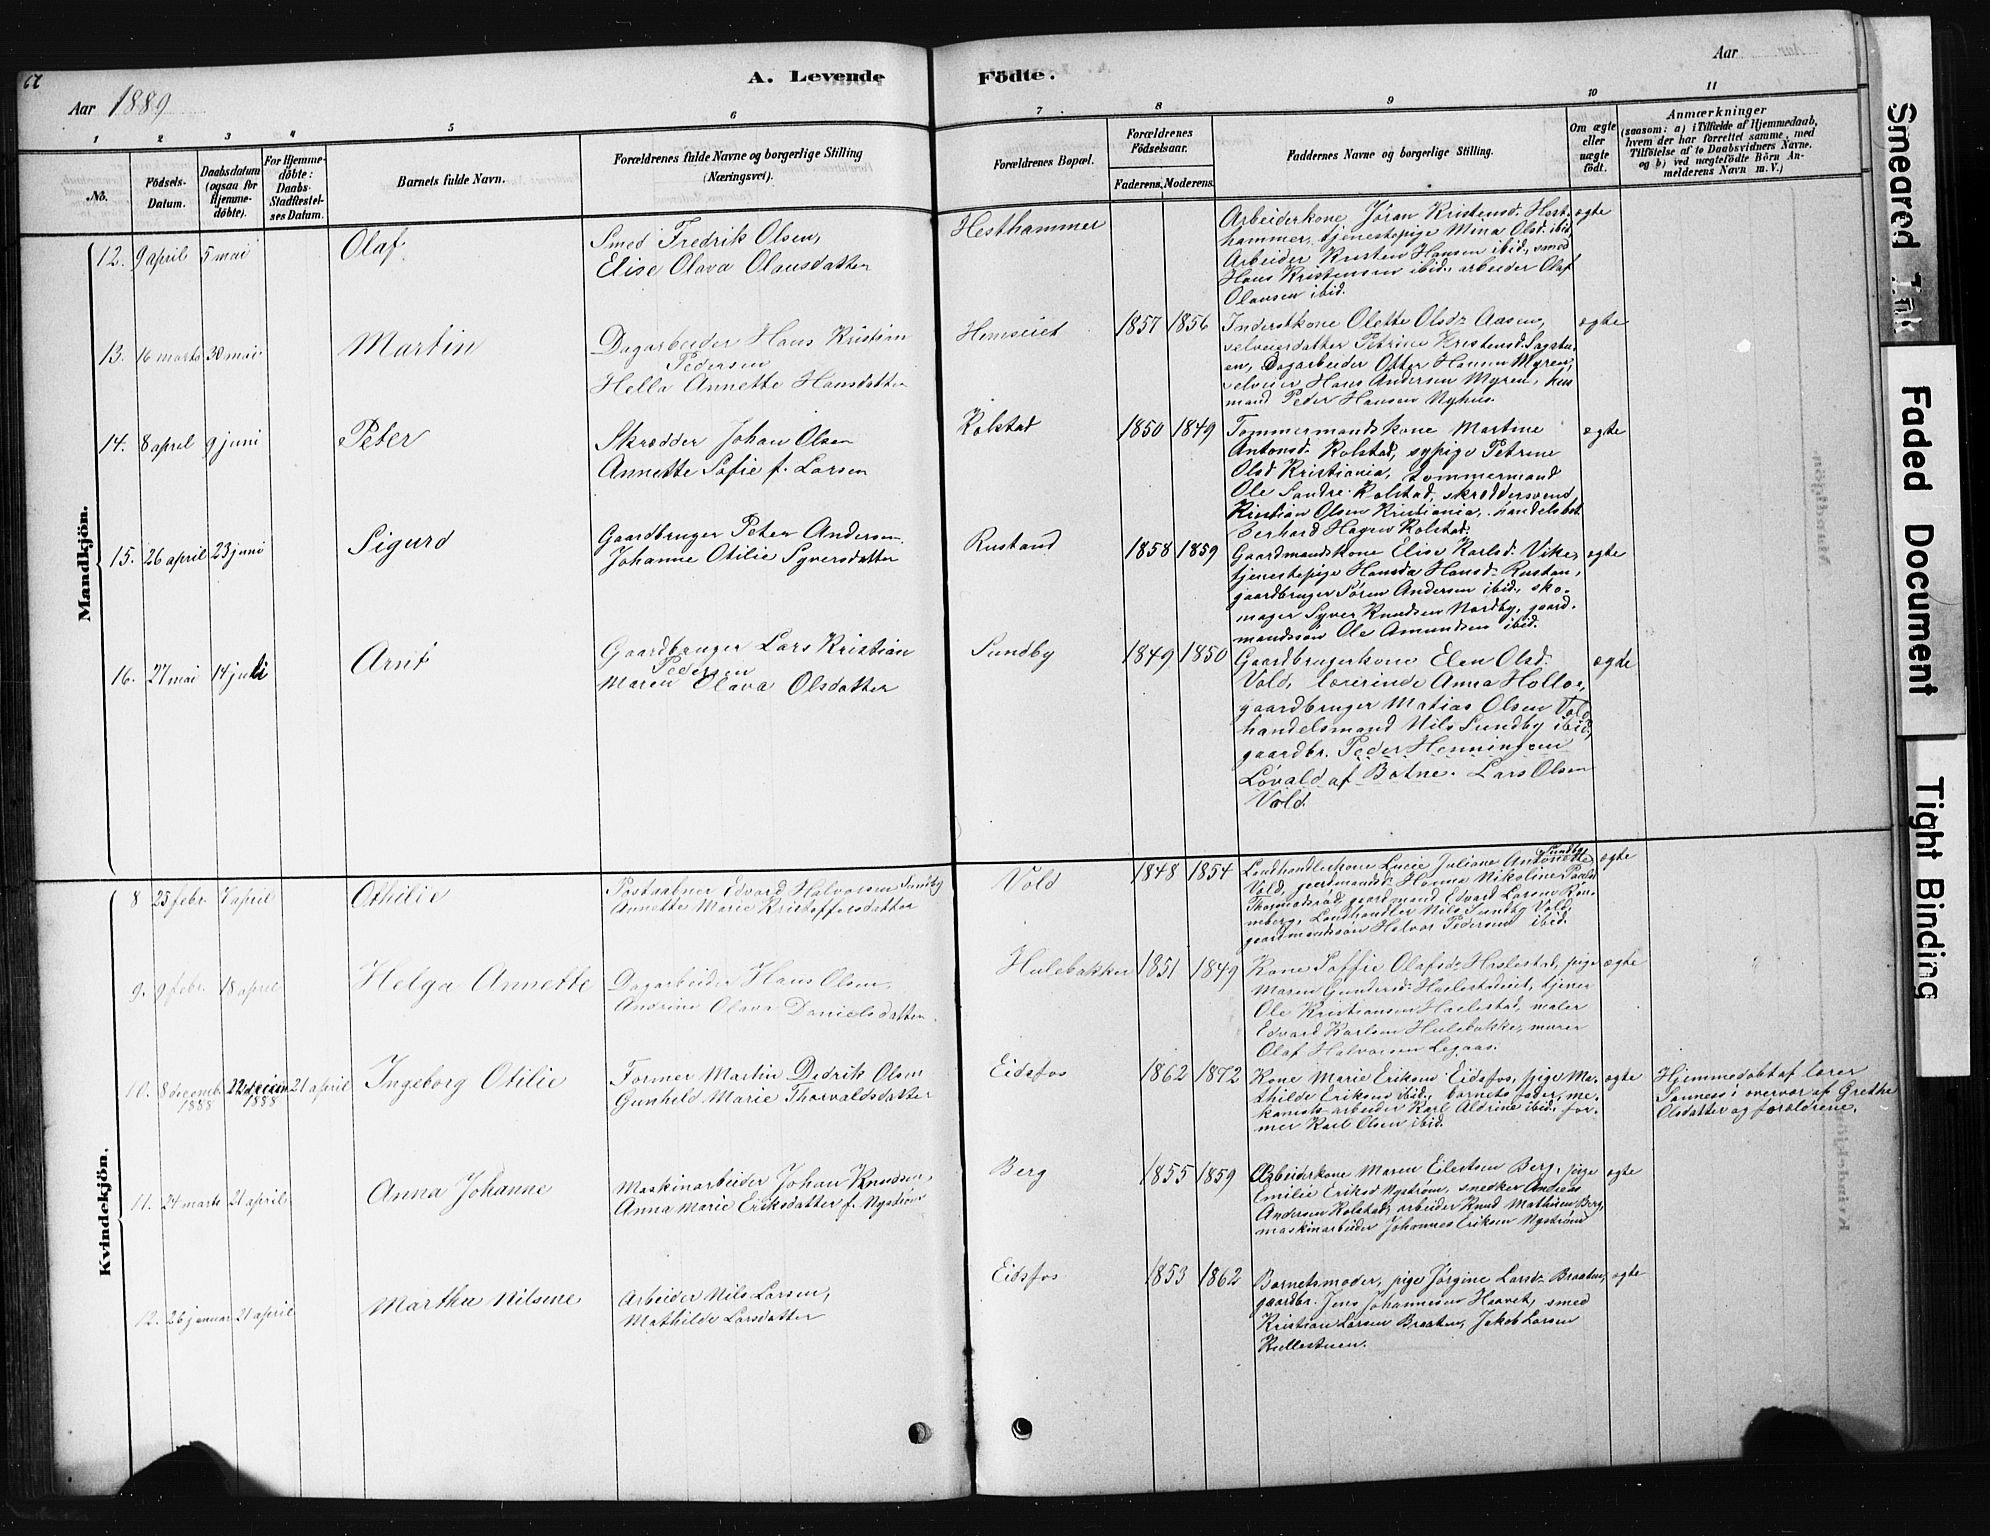 62
Aar 1889
A. Levende
Födte.
Aar
1
2
3
4
5
6
7
8
9
10
11
No.
Födsels-
Datum.
Daabsdatum
(ogsaa for
Hjemme-
döbte).
For Hjemme-
döbte:
Daabs-
Stadfæstel-
ses Datum.
Barnets fulde Navn.
Forældrenes fulde Navne og borgerlige Stilling
(Næringsvei).
Forældrenes Bopæl.
Forældrenes
Födselsaar.
Faderens. Moderens.
Faddernes Navne og borgerlige Stilling.
Om ægte
eller
uægte
födt.
Anmærkninger
(saasom: a) i Tilfælde af Hjemmedaab,
hvem der har forrettet samme, med
Tilföielse af to Daabsvidners Navne.
og b) ved uægtefödte Börn An-
melderens Navn m. V.)
Mandkjön.
12. 9 april 5 mai
Olaf
Smed Fredrik Olsen,
Elise Olava Olausdatter
Hesthammer
Arbeiderkone Jøran Kristensd. Hest-
hammer, tjenestepige Mina Olsd. ibid,
Arbeider Kristen Hansen ibid, smed
Hans Kristensen ibid, arbeider Olaf
Olausen ibid.
ægte
13. 16 marts 30 mai
Martin
Dagarbeider Hans Kristian
Pedersen
Hella Annette Hansdatter
Hemseiet
1857 1856
Inderstkone Olette Olsd. Aasen,
selveierdatter Petrine Kristensd. Sagstu-
en, Dagarbeider Otter Hansen Myren,
selveier Hans Andersen Myren, hus
mand Peder Hansen Nyhus.
ægte
14. 8 april 9 juni
Peter
Skrædder Johan Olsen
Annette Sofie f. Larsen
Kolstad
1850 1849
Tømmermandskone Martine
Antonsd. Kolstad, sypige Petrine
Olsd Kristiania, tømmermand
Ole Sandre Kolstad, skræddersvend
Kristian Olsen Kristiania, handelsbet.
Gerhard Hagen Kolstad.
ægte
15. 26 april 23 juni
Sigurd
Gaardbruger Peter Andersen
Johanne Otilie Syversdatter
Rustand
1858 1859
Gaardmandskone Elise Karlsd. Vike,
tjenestepige Hansda Hansd. Rustan,
gaardbruger Søren Andersen ibid, sko-
mager Syver Knudsen Nordby, gaard-
mandssøn Ole Amundsen ibid.
ægte
16. 27 mai 14 juli
Arnt
Gaardbruger Lars Kristian
Pedersen
Maren Olava Olsdatter
Sundby
1849 1850
Gaardbrugerkone Elen Olsd.
Vold, lærerinde Anna Holloe,
gaardbruger Matias Olsen Vold
handelsmand Nils Sundby ibid,
gaardbr. Peder Henningsen
Løvald af Botne. Lars Olsen
Vold.
ægte
Kvindekjön.
8 25 febr. 7 april
Othilie
Postaabner Edvard Halvorsen Sundby
Annette Marie Kristoffersdatter
Vold
1848 1854
Landhandlerkone Lucie Juliane Antonette Sundby
Vold, gaardmandsd. Hanna Nikoline Paulsd
gaardmand Edvard Larsen Røn-
neberg, Landhandler Nils Sundby Vold,
gaardmandssøn Halvor Pedersen ibid.
ægte
9. 9 febr. 18 april
Helga Annette
Dagarbeider Hans Olsen,
Andrine Olava Danielsdatter.
Hulebakken
1851 1849
Kone Soffie Olafsd. Haslestad, pige
Maren Gundersd. Haslestadeiet, tjener
Ole Kristiansen Haslestad, maler
Edvard Karlsen Hulebakke, murer
Olaf Halvorsen Legaas.
ægte
10. 8 decemb. 1888 22 decem 1888 21 april
Ingeborg Otilie
Former Martin Didrik Olsen
Gunhild Marie Thorvaldsdatter
Eidsfos
1862 1872
Kone Marie Eriksen Eidsfos, pige Ma-
thilde Eriksen ibid, barnets fader, me-
kanisk arbeider Karl Aldrine ibid, for-
mer Karl Olsen ibid.
ægte
Hjemmedøbt af lærer
Tønnes i overvær af Grethe
Olsdatter og forældrene.
11. 24 marts 21 april
Anna Johanne
Maskinarbeider Johan Knudsen,
Anna Marie Eriksdatter f. Nystrøm
Berg
1855 1859
Arbeiderkone Maren Eilertsen Berg, pige
Emilie Eriksd Nystrøm, snedker Andreas
Andersen Kolstad, arbeider Knud Mathisen Berg,
maskinarbeider Johannes Eriksen Nystrøm
ægte
12. 26 januar 21 april
Martha Nilsine
Arbeider Nils Larsen,
Mathilde Larsdatter
Eidsfos
1853 1862
Barnetsmoder, pige Jørgine Larsd. Braaten,
gaardbr. Jens Johannesen Haavet, smed
Kristian Larsen Braaten, Jakob Larsen
Kullestuen.
ægte
Smeared Ink
Faded Document
Tight Binding